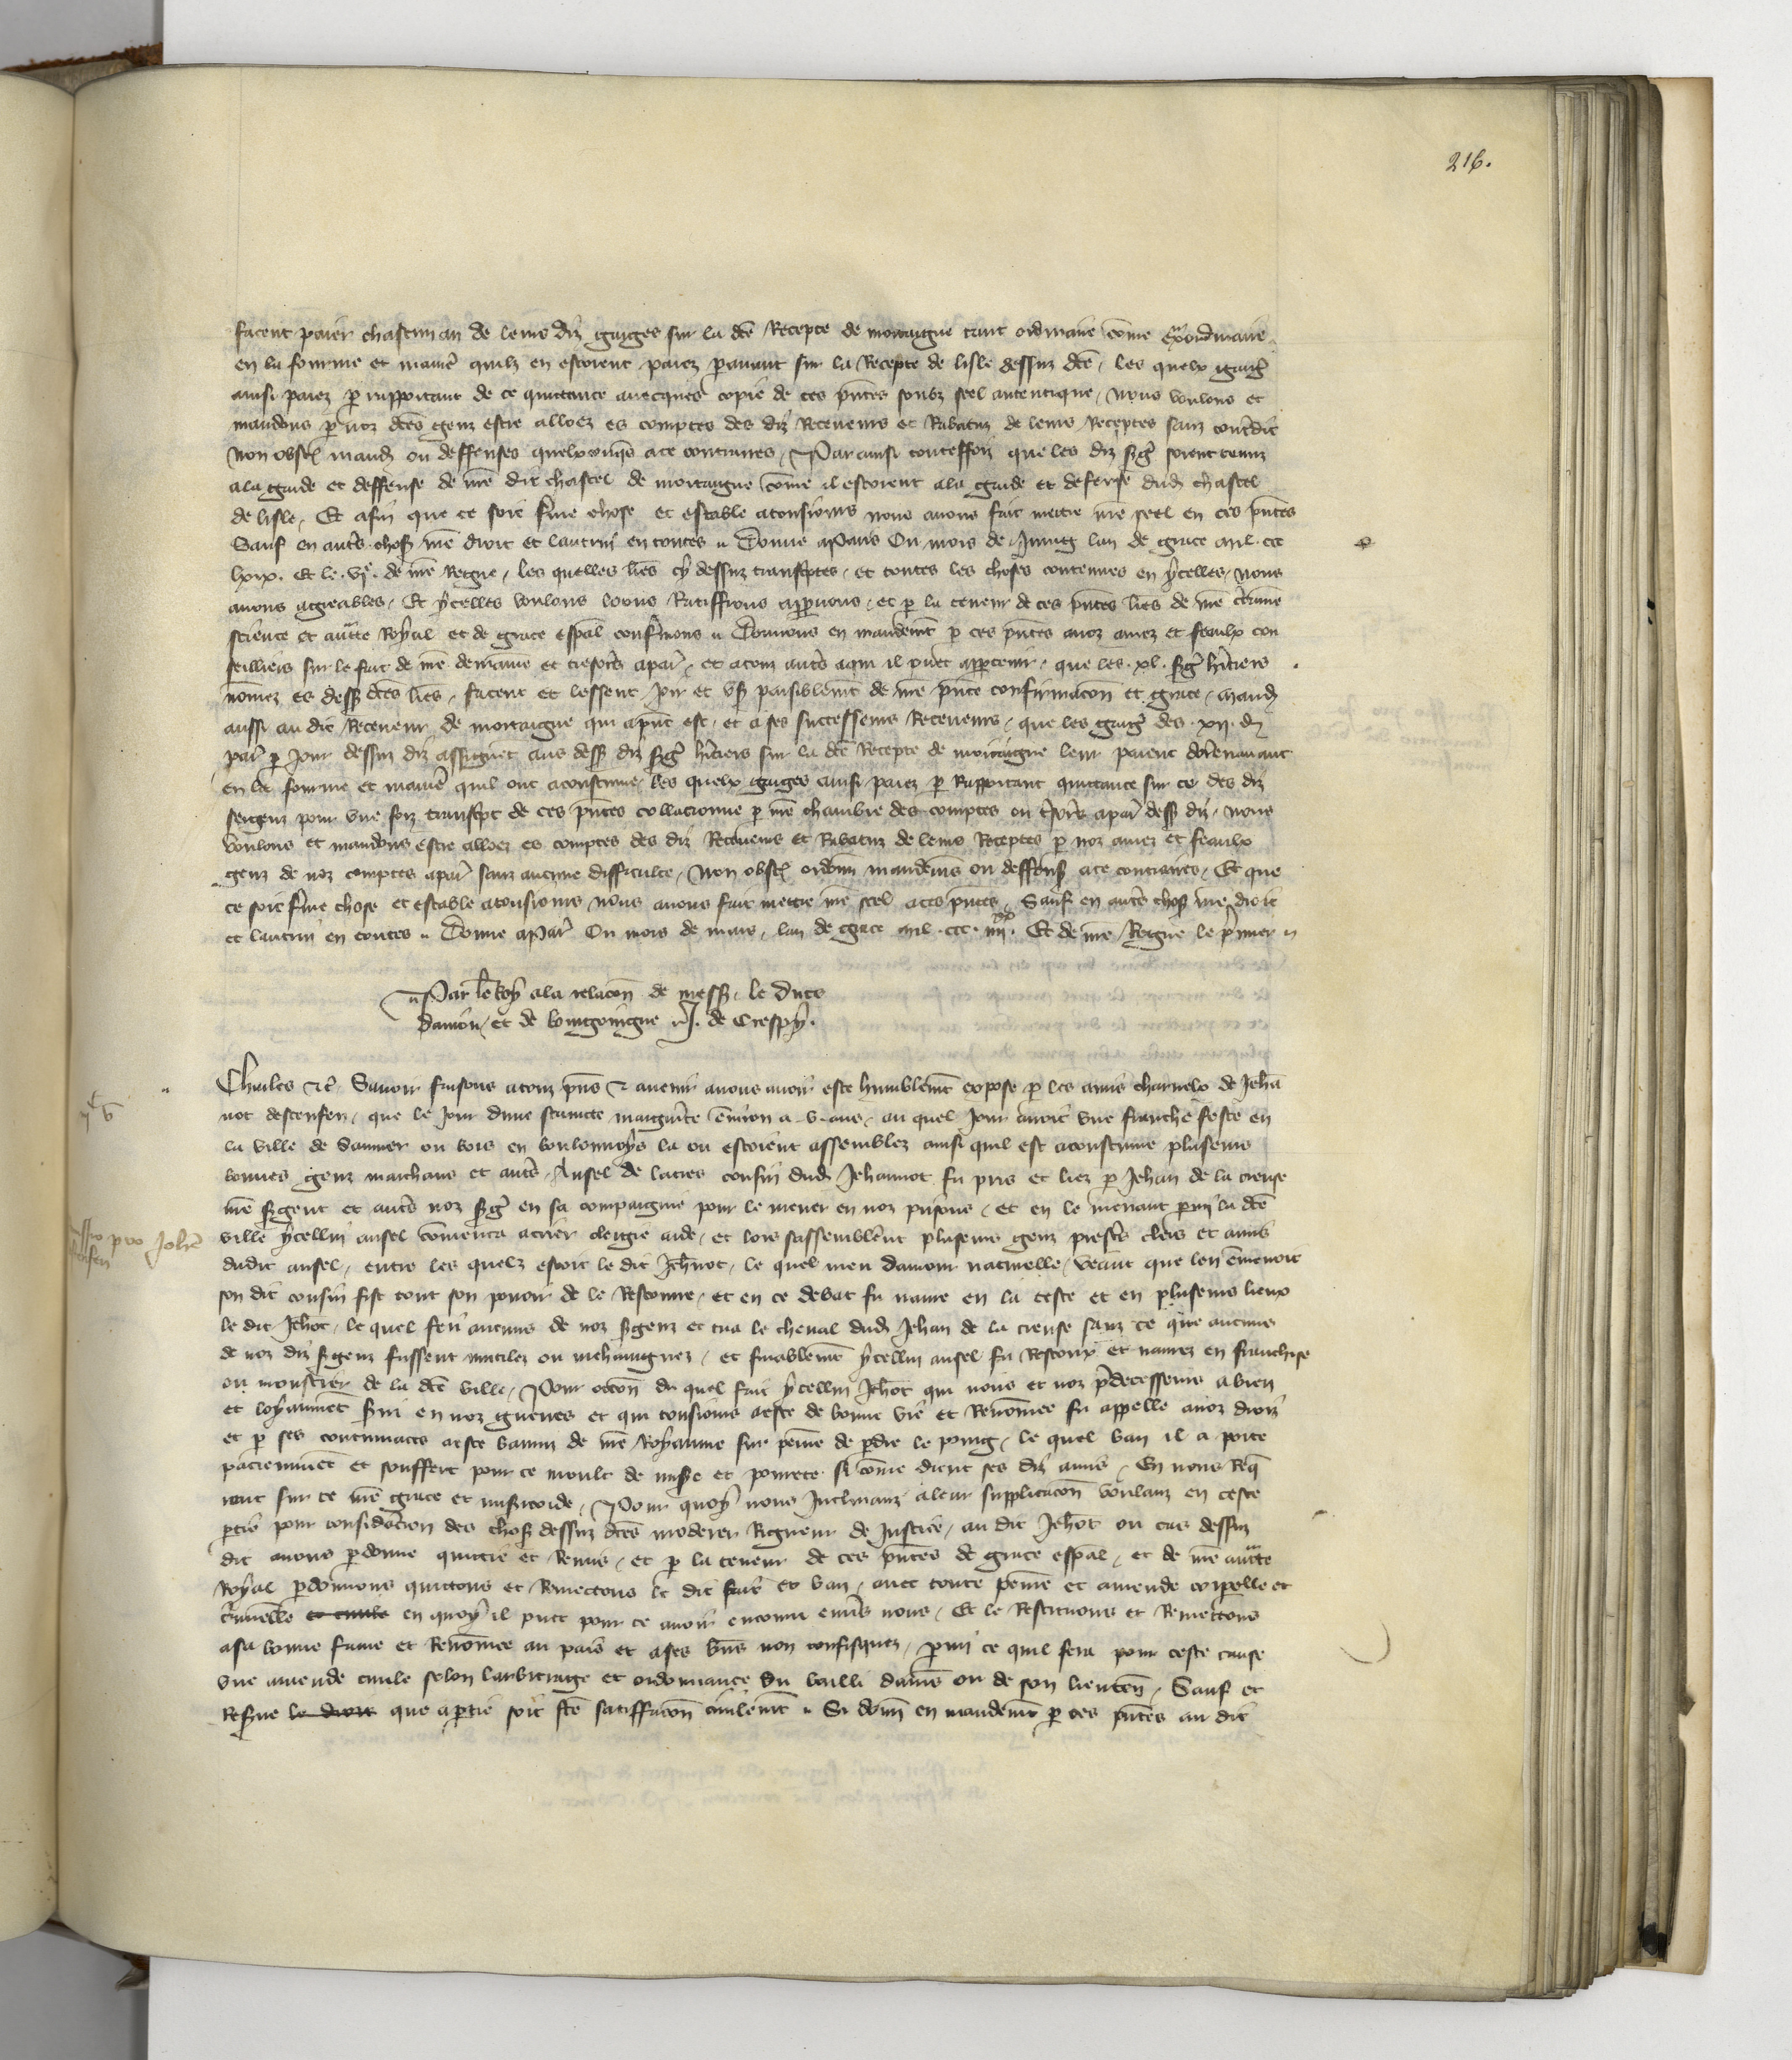 216.
facent paier chascun an de leurs diz gaiges sur la dce Recepte de mortaigne tant ordinaire come exordinaire
en la fourme et maniere quilz en estoient paiez pavant sur la Recepte de lisle dessuz dce, les quelx gaig
ainsi paiez p rapportant de ce quittance avecques copie de ces pntes soubz seel autentique, Nous voulons et
mandons p noz dces genz estre alloez es comptes des diz Receveurs et Rabatuz de leurs Receptes sanz contredit
Non obst mand ou deffenses quelxconqs a ce contraires, Par ainsi touteffoiz que les diz serg soient tenuz
a la garde et deffense de nre dit chastel de mortaigne come il estoient a la garde et defense dud chastel
de lisle, Et afin que ce soit ferme chose et estable a tousiours nous avons fait mettre nre seel en ces pntes
Sauf en autres choses nre droit et lautrui en toutes Donne a Paris Ou mois de Juing lan de grace mil ccc
lxix. Et le vie de nre Regne, les quelles lres cy dessuz transcriptes, et toutes les choses contenues en ycelles, Nous
avons agreables, Et ycelles voulons loons Ratiffions appvons, et p la teneur de ces pntes lres de nre certaine
science et auctte Royal et de grace espal confermons Donnons en mandemt p ces pntes a noz amez et feaulx con
seilliers sur le fait de nre demaine et tresors a par, et a touz autres a qui il puet appartenir, que les xl. serg h'itiers
nomez es dess dces lres, facent et lessent joir et user paisiblemt de nre pnte confirmacon et grace, mand
aussi au dit Receveur de mortaigne qui a pnt est, et a ses successeurs Receveurs, que les gaig des xii. d
par p jour dessuz diz assignez aus dess diz serg h'itiers sur la dce Recepte de mortaigne leur paient dorenavant
en la fourme et maniere quil ont acoustume, les quelx gaiges ainsi paiez p Rapportant quittance sur ce des diz
sergenz pour une foiz transcript de ces pntes collacionne p nre chambre des comptes ou tresor a par dess diz, Nous
voulons et mandons estre alloez es comptes des diz Receveurs et Rabatuz de leurs Receptes p noz amez et feaulx
genz de noz comptes a par sanz aucune difficulte, Non obst ordenn mandemens ou deffens a ce contraires, Et que
ce soit ferme chose et estable a tousiours Nous avons fait mettre nre seel a ces pntes, Sauf en autres choses nre droit
et lautrui en toutes Donne a Par Ou mois de mars, lan de grace mil ccc iiii xx. Et de nre Regne le pmier
Par le Roy a la relacon de mess. le Ducs
danjou, et de bourgoingne J. de Crespy.
Charles etc. Savoir faisons a touz pns et avenir a nous avoir este humblemt expose p les amis charnelx de Jeha
not descenfen, que le jour dune saincte marguerite environ a v ans, au quel jour avoit une franche feste en
la ville de Sanmer ou bois en boulonnoys la ou estoient assemblez ainsi quil est acoustume pluseurs
bonnes genz marchans et autres, Ansel de lacres cousin dud Jehannot fu pris et liez p Jehan de la creuse
nre sergent et autres noz serg en sa compaignie pour le mener en noz prisons, et en le menant parmi la dce
ville ycellui ansel comenca a crier clergie aide, et lors sassemblerent pluseurs genz prestres clers et amis
dudit ansel, entre les quelz estoit le dit Jehnot, le quel meu damour naturelle, veant que len emmenoit
son dit cousin fist tout son povoir de le Rescourre, et en ce debat fu navre en la teste et en pluseurs lieux
le dit Jehnot, le quel feri aucuns de noz sergenz et tua le cheval dud Jehan de la creuse sanz ce que aucuns
de noz diz sergenz fussent mutilez ou mehaignez, et finablement ycellui ansel fu Rescoux et menez en franchise
ou moustier de la dce ville, Pour occon du quel fait ycellui Jehnot qui nous et noz predecesseurs a bien
et loyaumet servi en noz guerres et qui tousiours a este de bonne vie et Renomee fu appelle a noz droiz
et p ses contumaces a este banni de nre Royaume sur peine de perdre le poing, le quel ban il a porte
paciemmet et souffert pour ce moult de misere et povrete si come dient ses diz amis, En nous Req
rant sur ce nre grace et misericorde, Pour quoy nous Inclinanz a leur supplicacon voulanz en ceste
ptie pour consideracion des choses dessuz dces moderer Rigueur de Justice, au dit Jehnot ou cas dessuz
dit avons pdonne quittie et Remis, et p la teneur de ces pntes de grace espal, et de nre auctte
Royal pdonnons quittons et Remettons le dit fait et ban, avec toute peine et amende corporelle et
criminelle et civile en quoy il puet pour ce avoir encouru envers nous, Et le Restituons et Remettons
a sa bonne fame et Renomee au pais et a ses biens non confisquez, parmi ce quil fera pour ceste cause
une amende civile selon larbitrage et ordonnance du bailli damiens ou de son lieuten, Sauf et
Reserve le droit que a ptie soit fce satiffacon civilemt Si donn en mandemt p ces pntes au dit